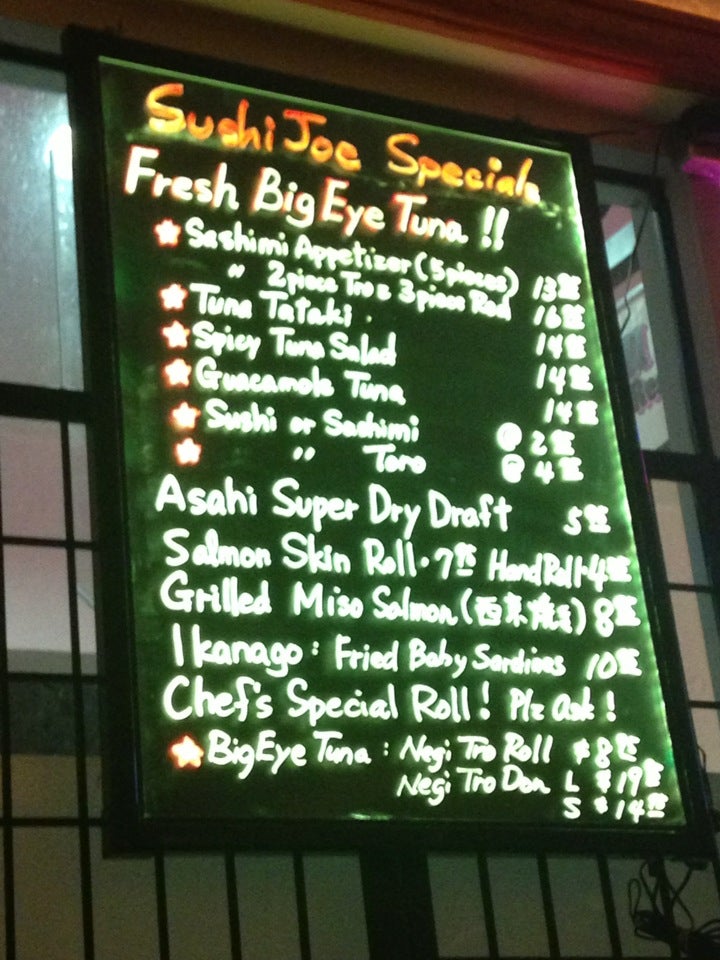 Sushi Joe Specials
Fresh Big Eye Tuna !!
Sashimi Appetizer (5 pieces) 13
〃 2 piece Tro & 3 piece Red 16
Tuna Tataki 14
Spicy Tuna Salad 14
Guacamole Tuna 14
Sushi or Sashimi @ 2
〃 Toro @ 4
Asahi Super Dry Draft 5
Salmon Skin Roll · 7 Hand Roll · 4
Grilled Miso Salmon (西京焼き) 8
Ikanago : Fried Baby Sardines 10
Chef's Special Roll! Plz ask!
Big Eye Tuna : Negi Tro Roll $8
Negi Tro Don L $19
S $14